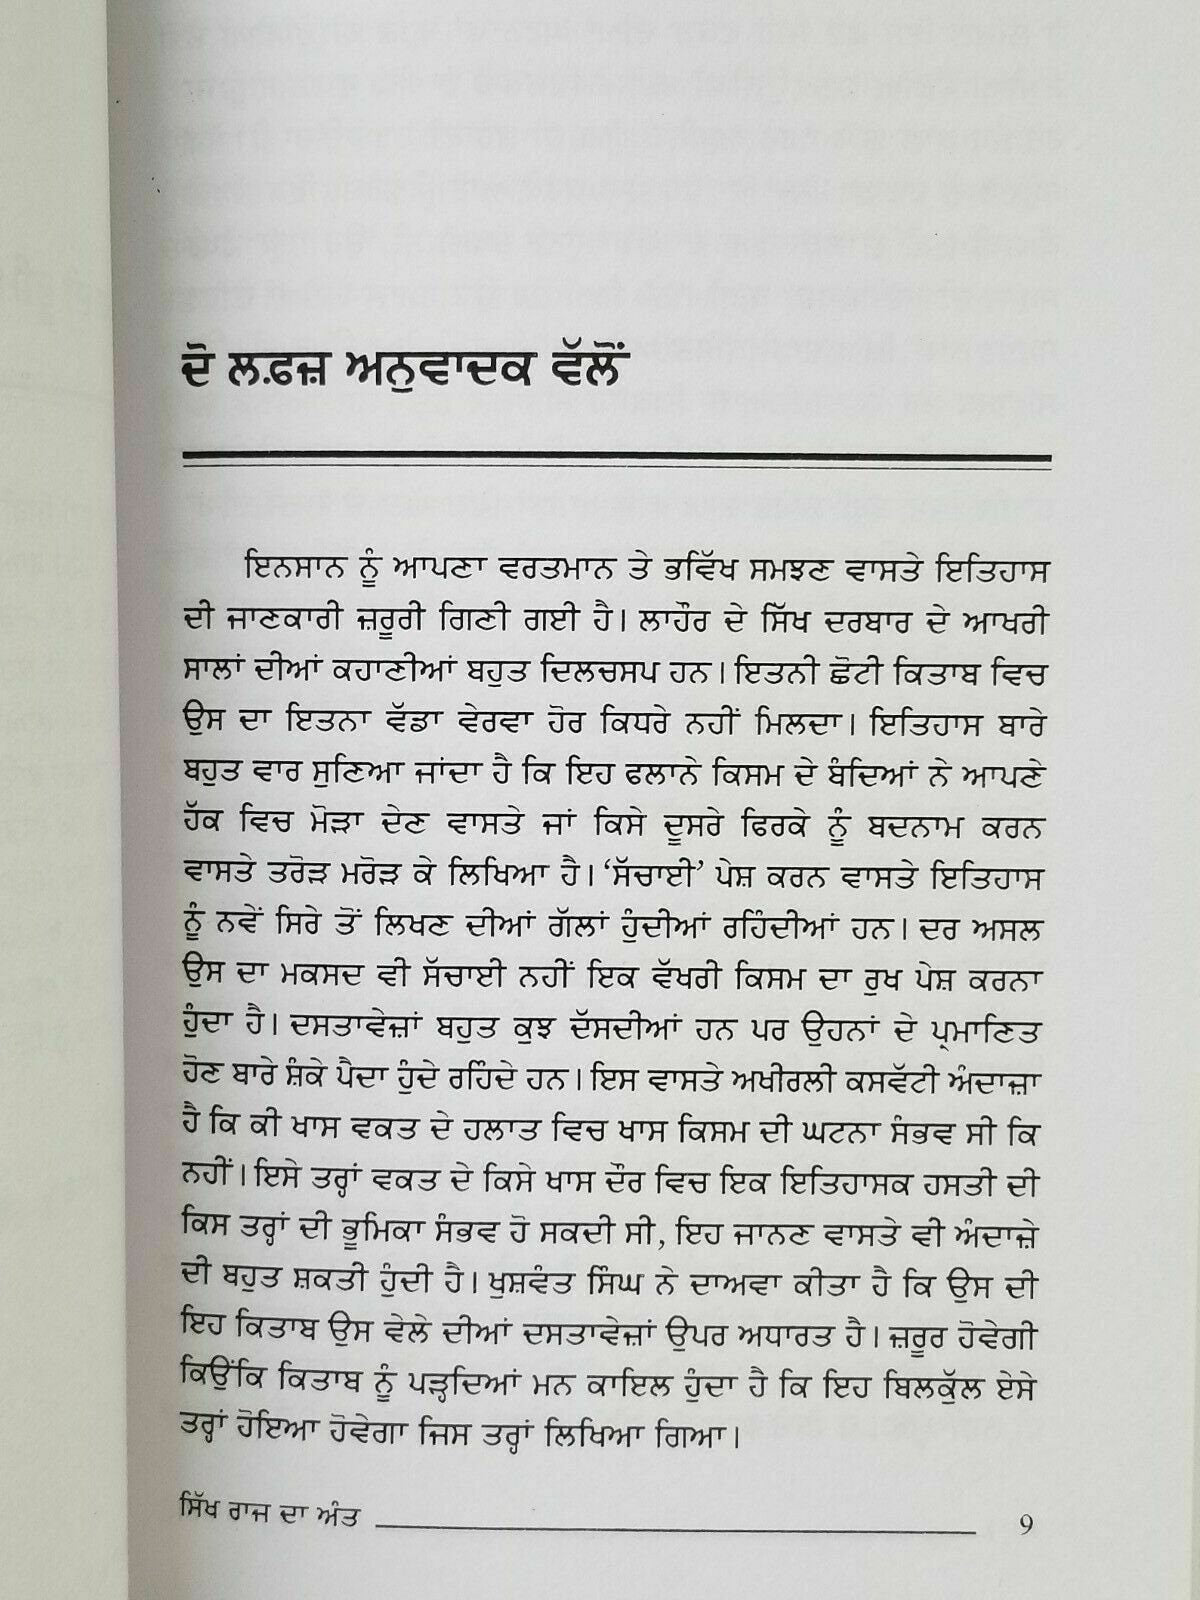 ਦੋ ਲਫ਼ਜ਼ ਅਨੁਵਾਦਕ ਵੱਲੋਂ
ਇਨਸਾਨ ਨੂੰ ਆਪਣਾ ਵਰਤਮਾਨ ਤੇ ਭਵਿੱਖ ਸਮਝਣ ਵਾਸਤੇ ਇਤਿਹਾਸ
ਦੀ ਜਾਣਕਾਰੀ ਜ਼ਰੂਰੀ ਗਿਣੀ ਗਈ ਹੈ। ਲਾਹੌਰ ਦੇ ਸਿੱਖ ਦਰਬਾਰ ਦੇ ਆਖਰੀ
ਸਾਲਾਂ ਦੀਆਂ ਕਹਾਣੀਆਂ ਬਹੁਤ ਦਿਲਚਸਪ ਹਨ। ਇਤਨੀ ਛੋਟੀ ਕਿਤਾਬ ਵਿਚ
ਉਸ ਦਾ ਇਤਨਾ ਵੱਡਾ ਵੇਰਵਾ ਹੋਰ ਕਿਧਰੇ ਨਹੀਂ ਮਿਲਦਾ। ਇਤਿਹਾਸ ਬਾਰੇ
ਬਹੁਤ ਵਾਰ ਸੁਣਿਆ ਜਾਂਦਾ ਹੈ ਕਿ ਇਹ ਫਲਾਨੇ ਕਿਸਮ ਦੇ ਬੰਦਿਆਂ ਨੇ ਆਪਣੇ
ਹੱਕ ਵਿਚ ਮੋੜਾ ਦੇਣ ਵਾਸਤੇ ਜਾਂ ਕਿਸੇ ਦੂਸਰੇ ਫਿਰਕੇ ਨੂੰ ਬਦਨਾਮ ਕਰਨ
ਵਾਸਤੇ ਤਰੋੜ ਮਰੋੜ ਕੇ ਲਿਖਿਆ ਹੈ। ‘ਸੱਚਾਈ’ ਪੇਸ਼ ਕਰਨ ਵਾਸਤੇ ਇਤਿਹਾਸ
ਨੂੰ ਨਵੇਂ ਸਿਰੇ ਤੋਂ ਲਿਖਣ ਦੀਆਂ ਗੱਲਾਂ ਹੁੰਦੀਆਂ ਰਹਿੰਦੀਆਂ ਹਨ। ਦਰ ਅਸਲ
ਉਸ ਦਾ ਮਕਸਦ ਵੀ ਸੱਚਾਈ ਨਹੀਂ ਇਕ ਵੱਖਰੀ ਕਿਸਮ ਦਾ ਰੁਖ ਪੇਸ਼ ਕਰਨਾ
ਹੁੰਦਾ ਹੈ। ਦਸਤਾਵੇਜ਼ਾਂ ਬਹੁਤ ਕੁਝ ਦੱਸਦੀਆਂ ਹਨ ਪਰ ਉਹਨਾਂ ਦੇ ਪ੍ਰਮਾਣਿਤ
ਹੋਣ ਬਾਰੇ ਸ਼ੰਕੇ ਪੈਦਾ ਹੁੰਦੇ ਰਹਿੰਦੇ ਹਨ। ਇਸ ਵਾਸਤੇ ਅਖੀਰਲੀ ਕਸਵੱਟੀ ਅੰਦਾਜ਼ਾ
ਹੈ ਕਿ ਕੀ ਖਾਸ ਵਕਤ ਦੇ ਹਲਾਤ ਵਿਚ ਖਾਸ ਕਿਸਮ ਦੀ ਘਟਨਾ ਸੰਭਵ ਸੀ ਕਿ
ਨਹੀਂ। ਇਸੇ ਤਰ੍ਹਾਂ ਵਕਤ ਦੇ ਕਿਸੇ ਖਾਸ ਦੌਰ ਵਿਚ ਇਕ ਇਤਿਹਾਸਕ ਹਸਤੀ ਦੀ
ਕਿਸ ਤਰ੍ਹਾਂ ਦੀ ਭੂਮਿਕਾ ਸੰਭਵ ਹੋ ਸਕਦੀ ਸੀ, ਇਹ ਜਾਨਣ ਵਾਸਤੇ ਵੀ ਅੰਦਾਜ਼ੇ
ਦੀ ਬਹੁਤ ਸ਼ਕਤੀ ਹੁੰਦੀ ਹੈ। ਖੁਸ਼ਵੰਤ ਸਿੰਘ ਨੇ ਦਾਅਵਾ ਕੀਤਾ ਹੈ ਕਿ ਉਸ ਦੀ
ਇਹ ਕਿਤਾਬ ਉਸ ਵੇਲੇ ਦੀਆਂ ਦਸਤਾਵੇਜ਼ਾਂ ਉਪਰ ਅਧਾਰਤ ਹੈ। ਜ਼ਰੂਰ ਹੋਵੇਗੀ
ਕਿਉਂਕਿ ਕਿਤਾਬ ਨੂੰ ਪੜ੍ਹਦਿਆਂ ਮਨ ਕਾਇਲ ਹੁੰਦਾ ਹੈ ਕਿ ਇਹ ਬਿਲਕੁੱਲ ਏਸੇ
ਤਰ੍ਹਾਂ ਹੋਇਆ ਹੋਵੇਗਾ ਜਿਸ ਤਰ੍ਹਾਂ ਲਿਖਿਆ ਗਿਆ।
ਸਿੱਖ ਰਾਜ ਦਾ ਅੰਤ 9